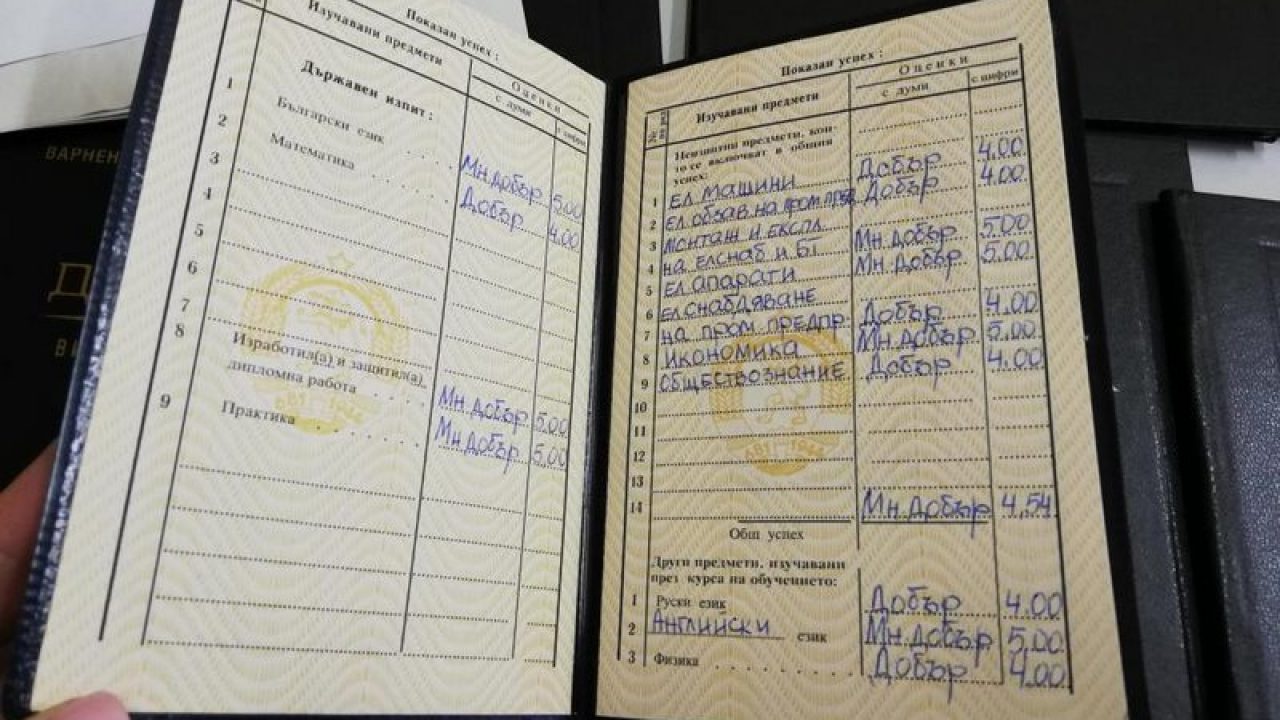 ВАРНЕН
Д
В И
Показан успех :
Изучавани предмети
Оценки
с думи
с цифри
Държавен изпит :
1
Български език . . . . Мн.добър 5.00
2
Математика . . . . Добър 4.00
3
4
5
6
7
8
Изработил(а) и защитил(а)
дипломна работа Мн.добър 5.00
9
Практика . . . . . . . Мн.добър 5.00
Показан успех :
№
по ред
Изучавани предмети
Оценки
с думи
с цифри
Неизпитни предмети, кои-
то се включват в общия
успех:
1 ЕЛ МАШИНИ Добър 4.00
2 ЕЛ ОБЗАВ. НА ПРОМ. ПРЕД Добър 4.00
3 МОНТАЖ И ЕКСПЛ.
4 НА ЕЛСНАБ И БТ Мн.добър 5.00
5 ЕЛ АПАРАТИ Мн.добър 5.00
6 ЕЛСНАБДЯВАНЕ
7 НА ПРОМ. ПРЕДПР. Добър 4.00
8 ИКОНОМИКА Мн.добър 5.00
9 ОБЩЕСТВОЗНАНИЕ Добър 4.00
10
11
12
13
14
Общ успех Мн.добър 4,54
Други предмети, изучавани
през курса на обучението:
1 Руски език Добър 4.00
2 Английски език Мн.добър 5.00
3 Физика . . . . . . . Добър 4.00